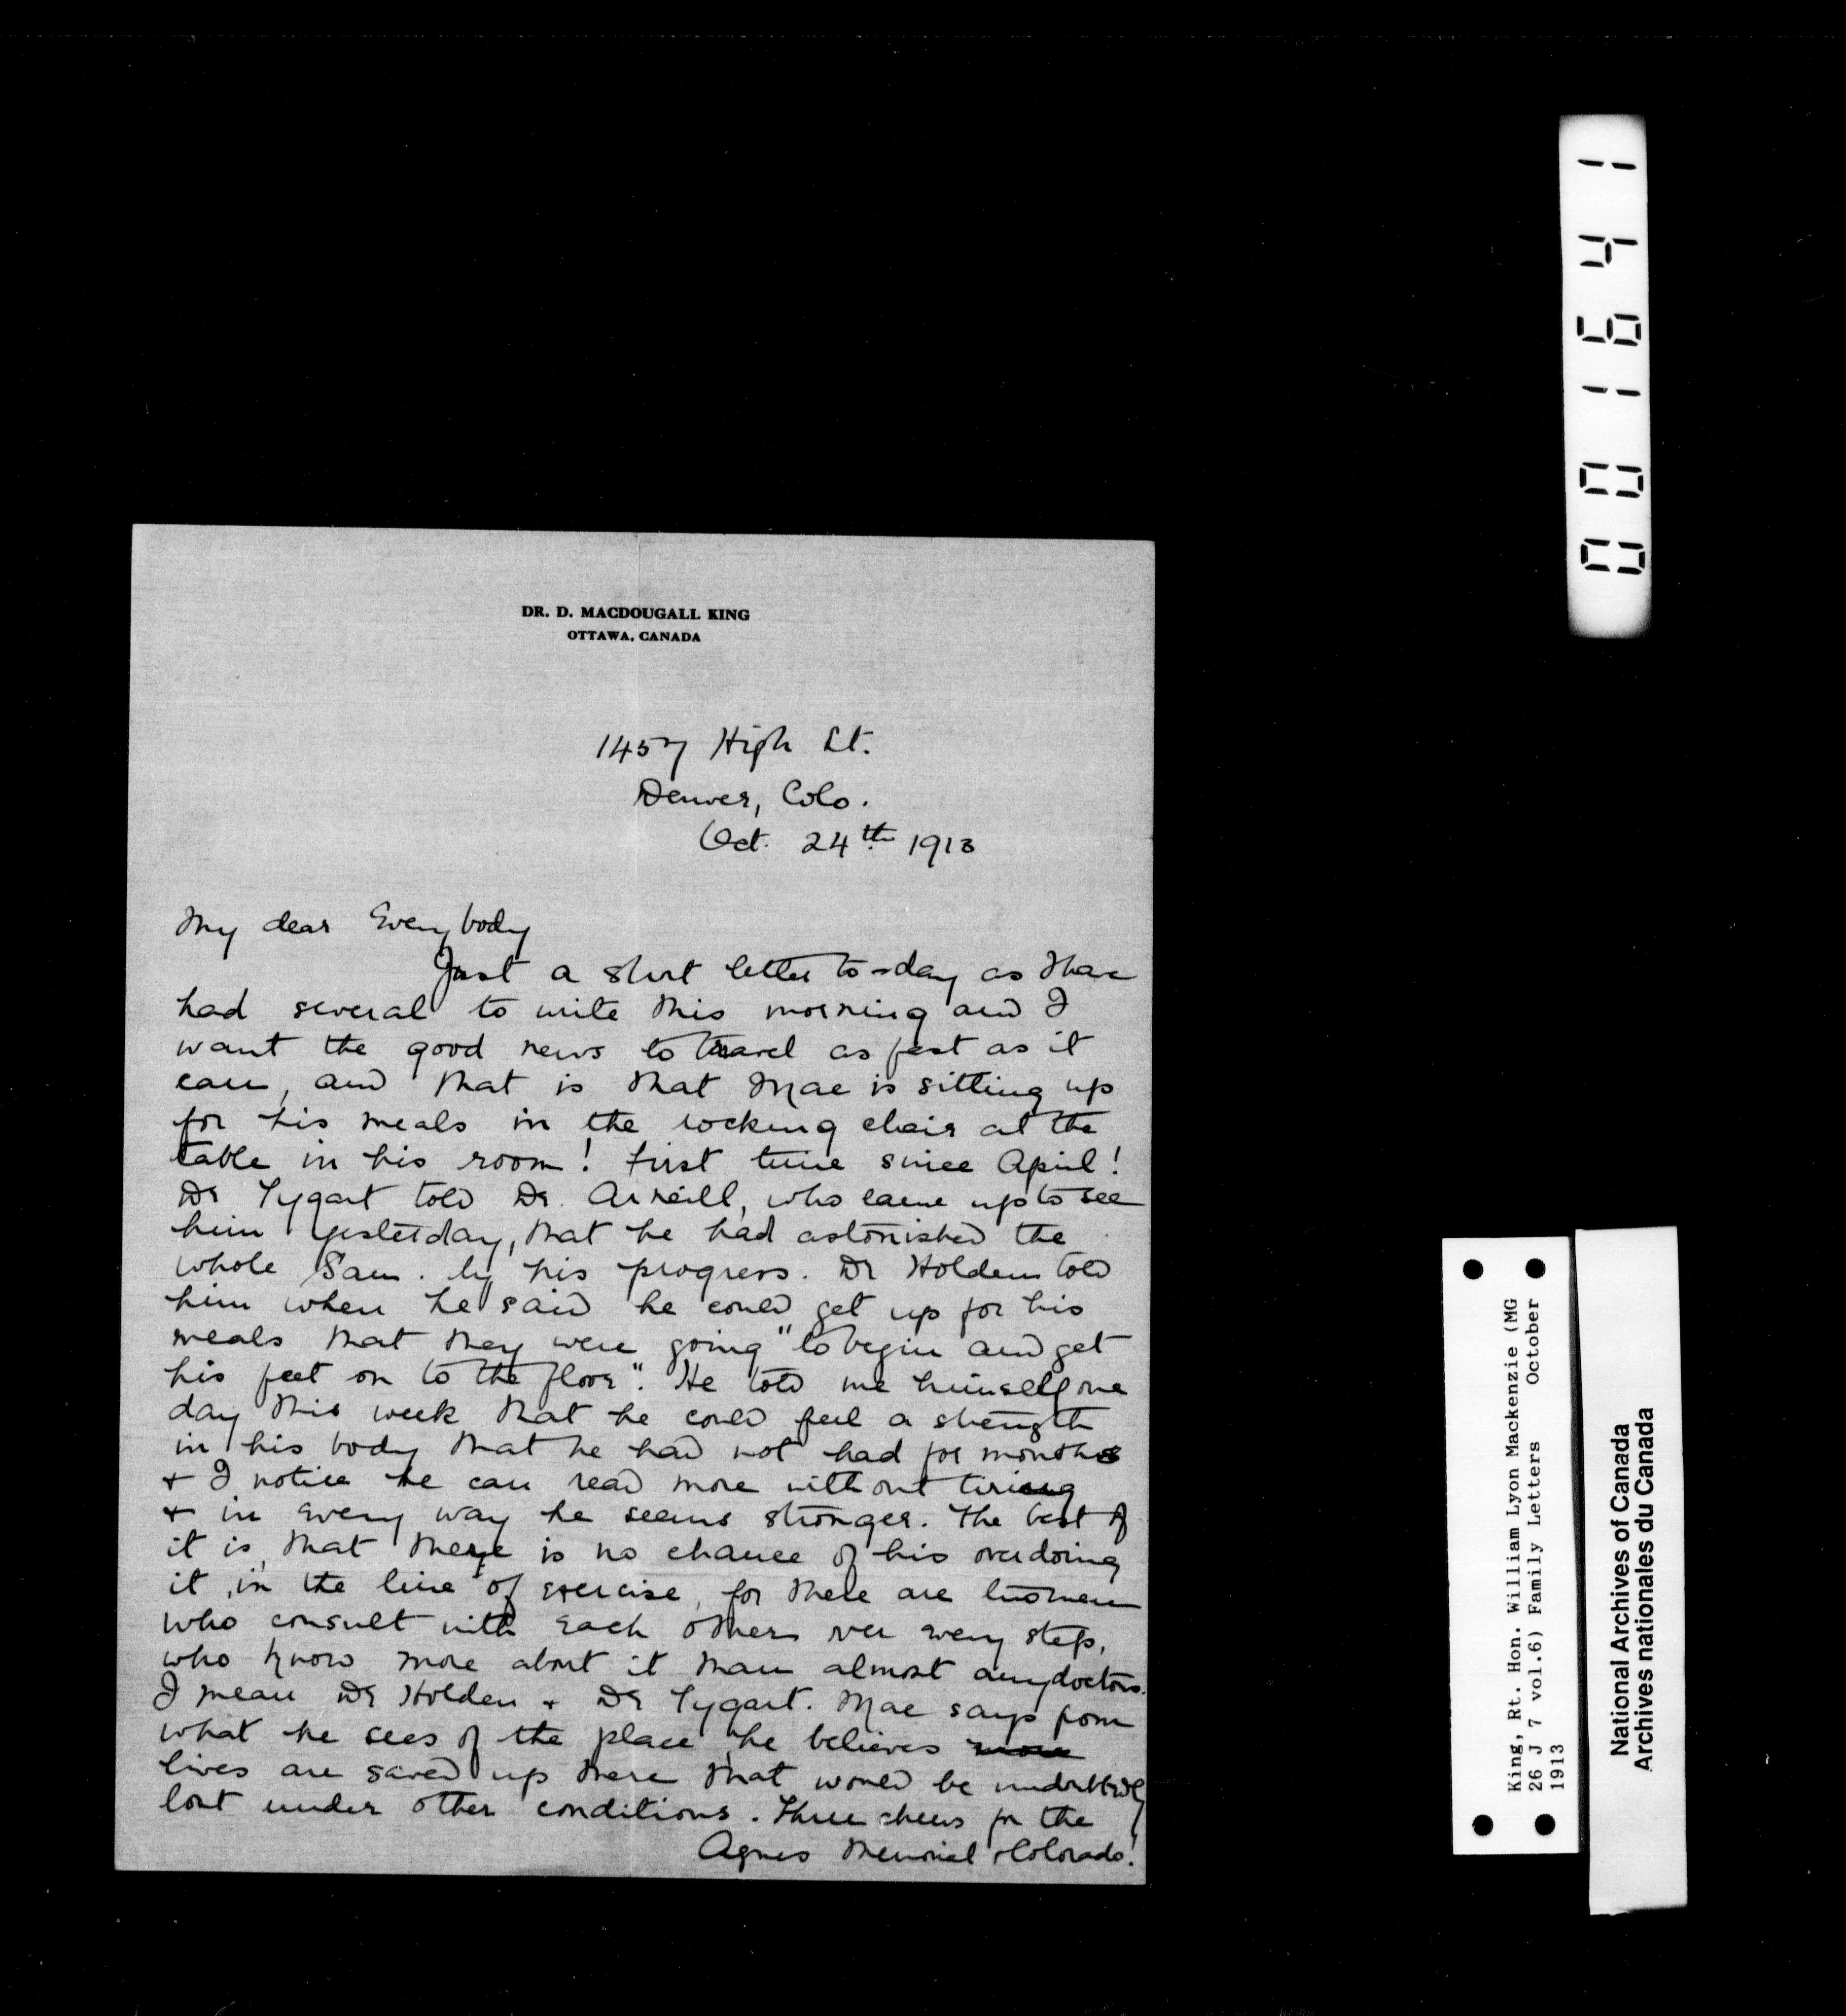 DR. D. MACDOUGALL KING
OTTAWA, CANADA
1457 High St.
Denver, Colo.
Oct. 24th 1913
My dear Everybody
Just a short letter to-day as I have
had several to write this morning and I
want the good news to travel as fast as it
can, and that is that Mac is sitting up
for his meals in the rocking chair at the
table in his room! First time since April!
Dr Tygart told Dr. Arneill, who came up to see
him yesterday, that he had astonished the
whole San. by his progress. Dr Holden told
him when he said he could get up for his
meals that they were going "to begin and get
his feet on to the floor". He told me himself one
day this week that he could feel a strength
in his body that he had not had for months
+ I notice he can read more without tiring
+ in every way he seems stronger. The best of
it is, that there is no chance of his overdoing
it, in the line of exercise, for there are two men
who consult with each other over every step,
who know more about it than almost any doctors.
I mean Dr Holden + Dr Tygart. Mac says from
what he sees of the place he believes more
lives are saved up there that would be undoubtedly
lost under other conditions. Three cheers for the
Agnes Memorial + Colorado!
001641
King, Rt. Hon. William Lyon Mackenzie (MG
26 J 7 vol.6) Family Letters October
1913
National Archives of Canada
Archives nationales du Canada